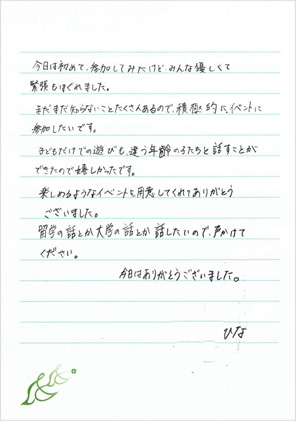 今日は初めて、参加してみたけど、みんな優しくて
緊張もほぐれました。
まだまだ知らないことたくさんあるので、積極的にイベントに
参加したいです。
子どもだけでの遊びも、違う年齢の子たちと話すことが
できたので嬉しかったです。
楽しめるようなイベントを用意してくれてありがとう
ございました。
留学の話とか大学の話とか話したいので、声かけて
ください。
今日はありがとうございました。
ひな